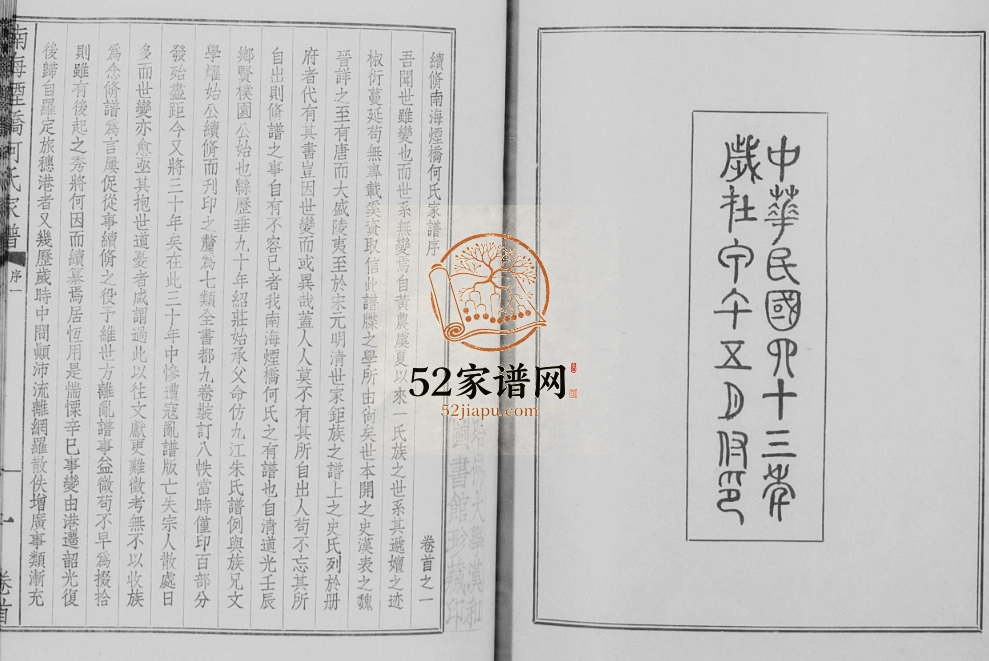 中華民國四十三年
歲在甲午五月付印
續脩南海煙橋何氏家譜序
卷首之一
吾聞世雖變也而世系無變焉自黃農虞夏以來一氏族之世系其遞嬗之迹
椒衍蔓延苟無專載奚資取信此譜牒之學所由尙矣世本開之史漢表之魏
晉詳之至有唐而大盛陵夷至於宋元明清世家鉅族之譜上之史氏列於册
府者代有其書豈因世變而或異哉蓋人人莫不有其所自出人苟不忘其所
自出則脩譜之事自有不容已者我南海煙橋何氏之有譜也自清道光壬辰
鄉賢樸園公始也緜歷垂九十年紹莊始承父命仿九江朱氏譜例與族兄文
學燿始公續脩而刊印之釐為七類全書都九卷裝訂八帙當時僅印百部分
發殆盡距今又將三十年矣在此三十年中慘遭寇亂譜版亡失宗人散處日
多而世變亦愈亟其抱世道憂者咸謂過此以往文獻更難徵考無不以收族
爲念脩譜爲言屢促從事續脩之役予維世方離亂譜事益微苟不早爲掇拾
則雖有後起之秀將何因而續纂焉居恆用是惴慄辛巳事變由港遷韶光復
後歸自羅定旅穗港者又幾歷歲時中間顚沛流離網羅散佚增廣事類漸充
南海煙橋何氏家譜
序一
卷首
圖書館珍藏印
52家谱网
52jiapu.com